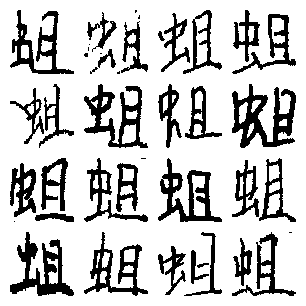 蛆蛆蛆蛆
蛆蛆蛆蛆
蛆蛆蛆蛆
蛆蛆蛆蛆